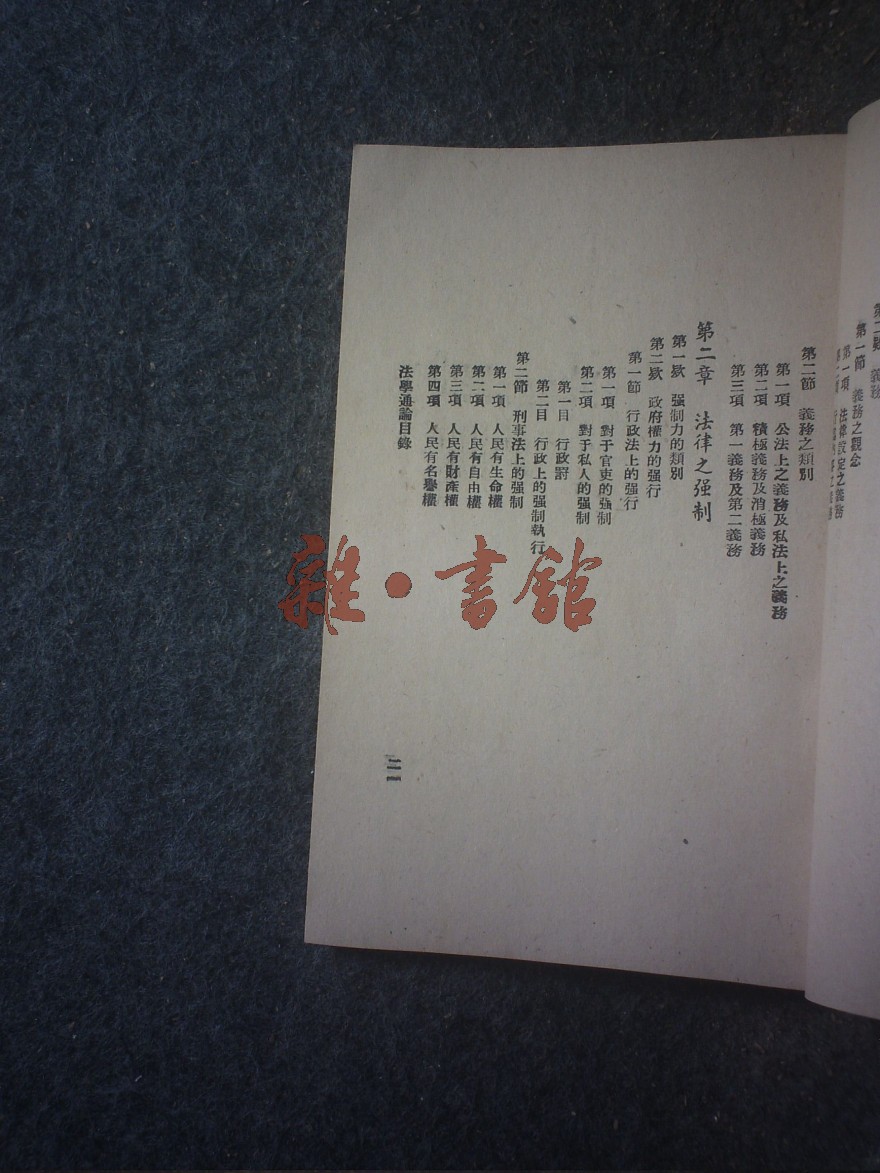 第二款 義務
第一節 義務之觀念
第一項 法律設定之義務
第二節 義務之類別
第一項 公法上之義務及私法上之義務
第二項 積極義務及消極義務
第三項 第一義務及第二義務
第二章 法律之强制
第一欵 强制力的類別
第二欵 政府權力的强行
第一節 行政法上的强行
第一項 對于官吏的强制
第二項 對于私人的强制
第一目 行政罸
第二目 行政上的强制執行
第二節 刑事法上的强制
第一項 人民有生命權
第二項 人民有自由權
第三項 人民有財產權
第四項 人民有名譽權
法學通論目錄
二一
雜·書館